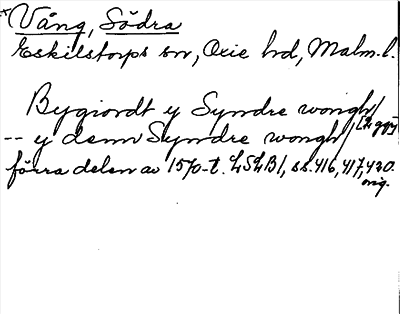 *Vång, Södra
Eskilstorps sn, Oxie hd, Malm.l.
Bygiordt y Syndre wongh/
-- y denn Syndre wongh/ 2 ggr
förra delen av 1570-t. LSLB1, ss. 416, 417, 430.
orig.